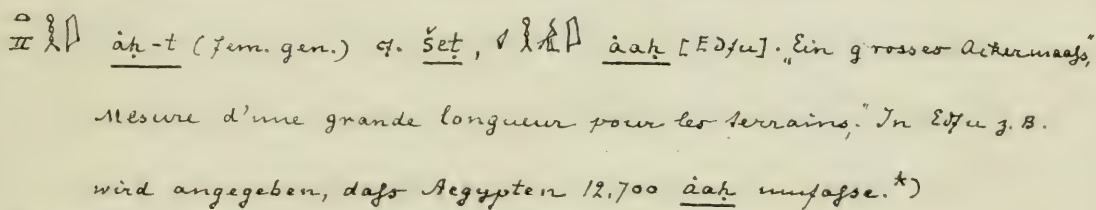 ȧḥ-t (fem. gen.) cf. šeṭ, ȧaḥ [Edfu]. „Ein grosses Ackermaaſs,"
Mesure d'une grande longueur pour les terrains." In Edfu z. B.
wird angegeben, daſs Aegypten 12,700 ȧaḥ umfaſse.*)